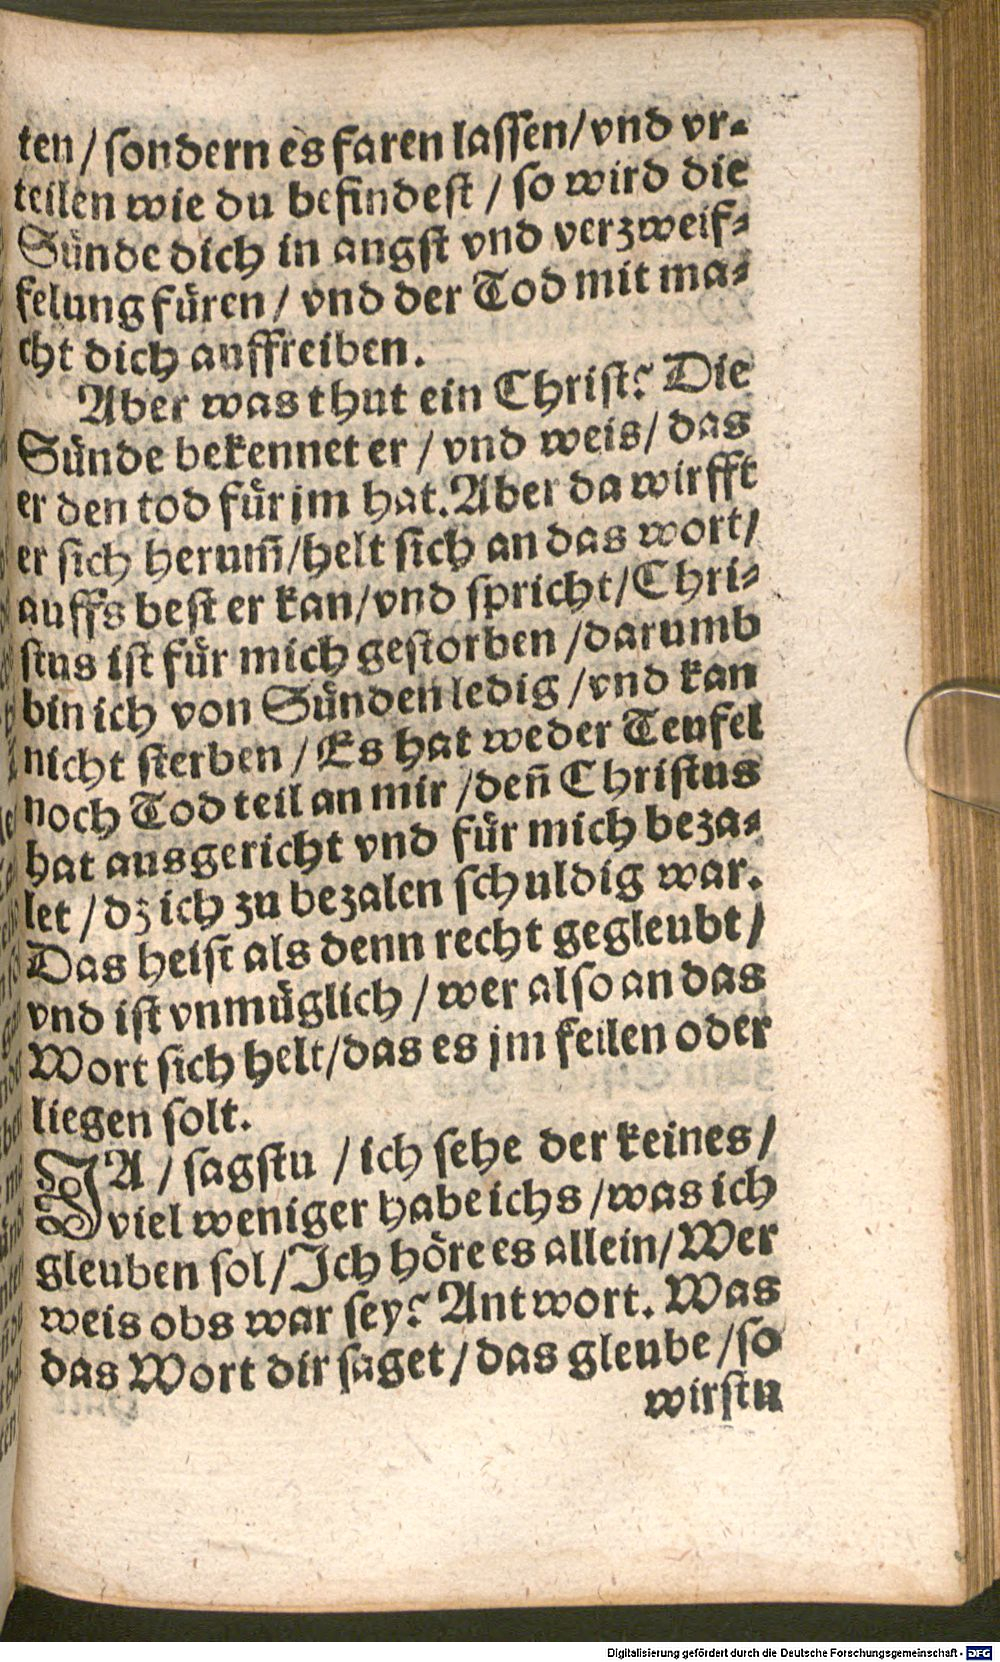 ten / sondern es faren lassen / vnd vr-
teilen wie du befindest / so wird die
Sünde dich in angst vnd verzweif-
felung füren / vnd der Tod mit ma-
cht dich auffreiben.
Aber was thut ein Christ? Die
Sünde bekennet er / vnd weis / das
er den tod für jm hat. Aber da wirfft
er sich herum̃ / helt sich an das wort /
auffs best er kan / vnd spricht / Chri-
stus ist für mich gestorben / darumb
bin ich von Sünden ledig / vnd kan
nicht sterben / Es hat weder Teufel
noch Tod teil an mir / deñ Christus
hat ausgericht vnd für mich beza-
let / dz ich zu bezalen schuldig war.
Das heist als denn recht gegleubt /
vnd ist vnmüglich / wer also an das
Wort sich helt / das es jm feilen oder
liegen solt.
JA / sagstu / ich sehe der keines /
viel weniger habe ichs / was ich
gleuben sol / Ich höre es allein / Wer
weis obs war sey? Antwort. Was
das Wort dir saget / das gleube / so
wirstu
Digitalisierung gefördert durch die Deutsche Forschungsgemeinschaft - DFG